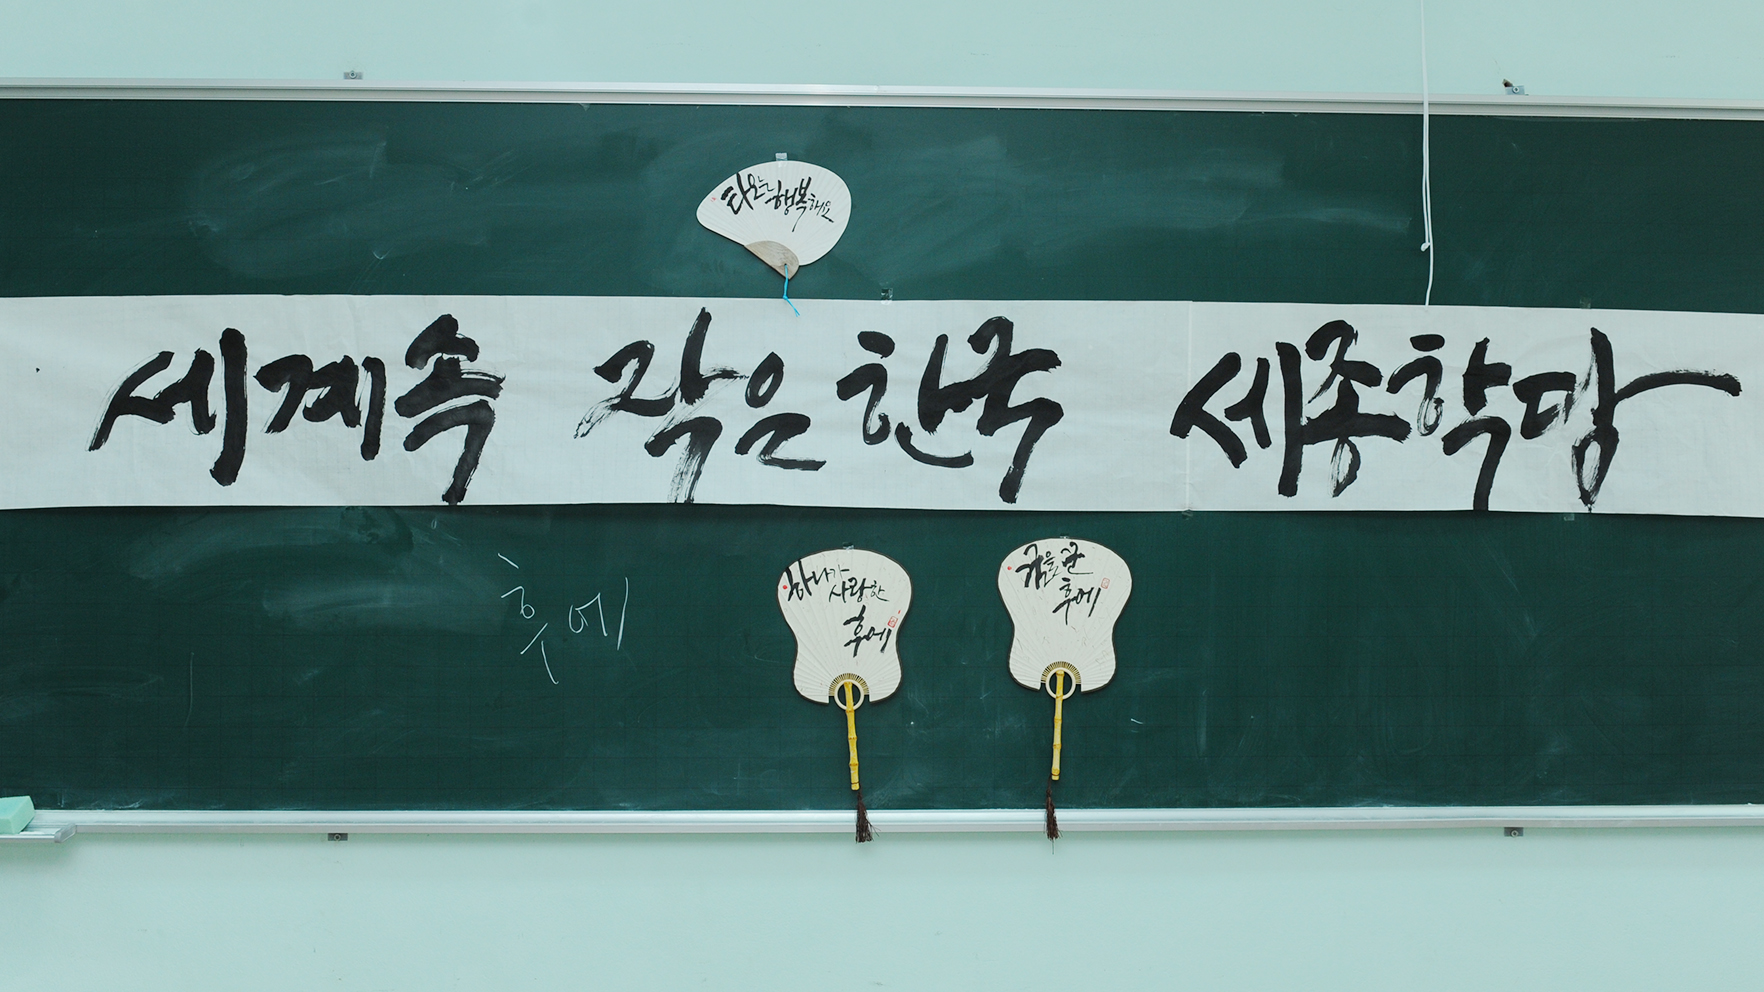 타오는 행복해요
세계속 작은 한국 세종학당
후에
하나가
사랑한
후에
후에